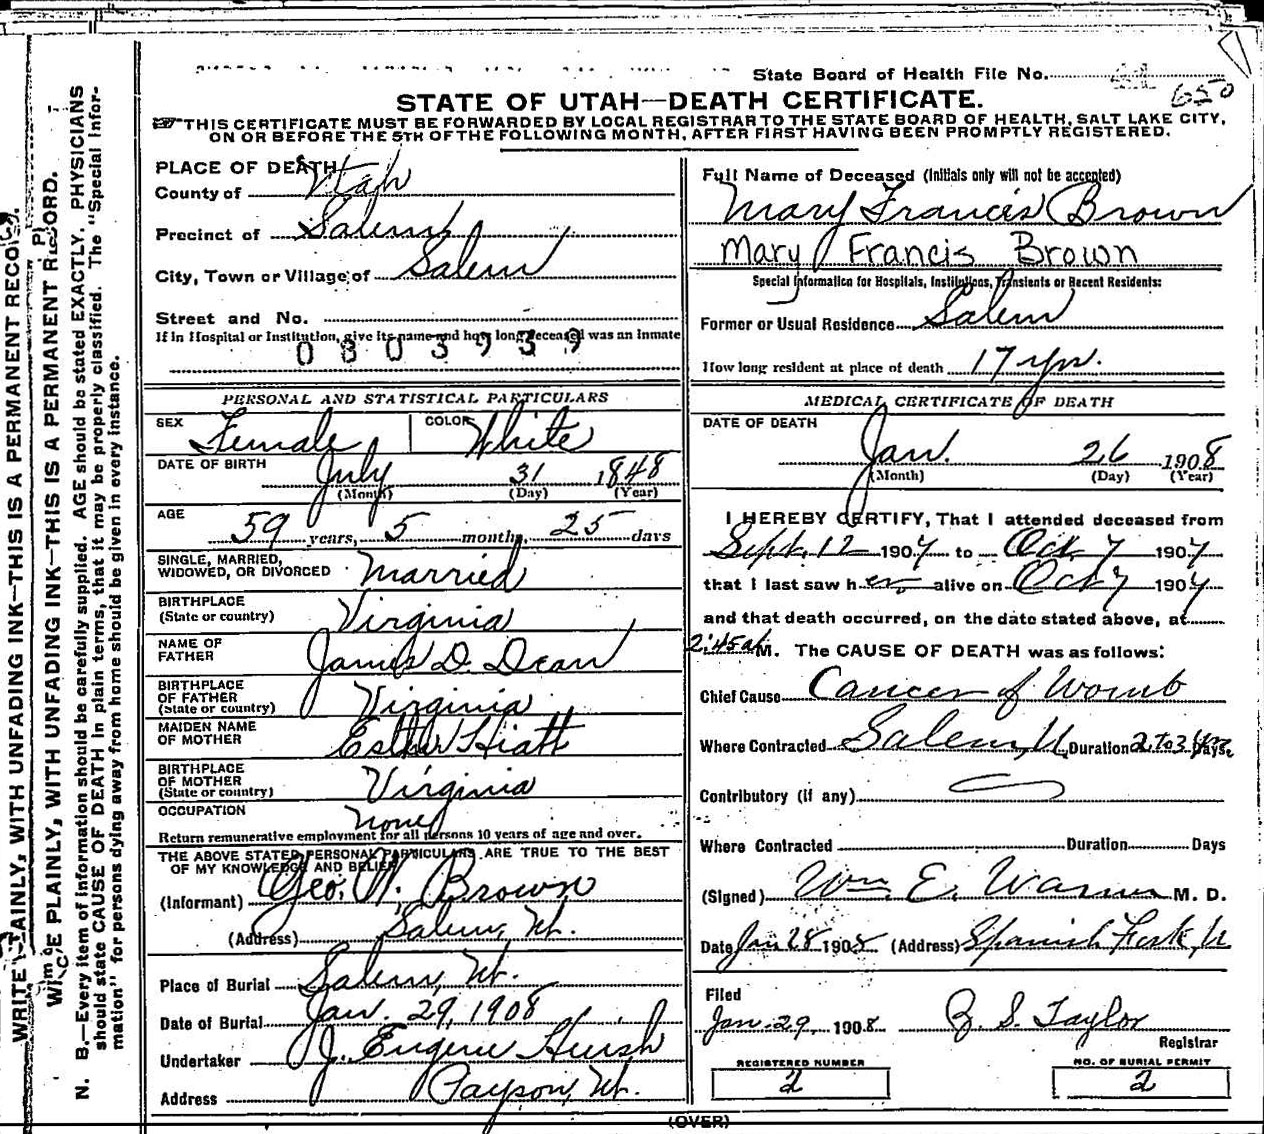 State Board of Health File No. 650
STATE OF UTAH—DEATH CERTIFICATE.
THIS CERTIFICATE MUST BE FORWARDED BY LOCAL REGISTRAR TO THE STATE BOARD OF HEALTH, SALT LAKE CITY,
ON OR BEFORE THE 5TH OF THE FOLLOWING MONTH, AFTER FIRST HAVING BEEN PROMPTLY REGISTERED.
PLACE OF DEATH
County of Utah
Precinct of Salem
City, Town or Village of Salem
Street and No.
If in Hospital or Institution, give its name and how long deceased was an inmate
0303939
PERSONAL AND STATISTICAL PARTICULARS
SEX Female COLOR White
DATE OF BIRTH July 31 1848
(Month) (Day) (Year)
AGE 59 years, 5 months, 25 days
SINGLE, MARRIED,
WIDOWED, OR DIVORCED Married
BIRTHPLACE
(State or country) Virginia
NAME OF
FATHER James D. Dean
BIRTHPLACE
OF FATHER
(State or country) Virginia
MAIDEN NAME
OF MOTHER Esther Hiatt
BIRTHPLACE
OF MOTHER
(State or country) Virginia
OCCUPATION None
Return remunerative employment for all persons 10 years of age and over.
THE ABOVE STATED PERSONAL PARTICULARS ARE TRUE TO THE BEST
OF MY KNOWLEDGE AND BELIEF
(Informant) Geo. W. Brown
(Address) Salem, Ut.
Place of Burial Salem, Ut.
Date of Burial Jan. 29, 1908
Undertaker J. Eugene Huish
Address Payson, Ut.
Full Name of Deceased (Initials only will not be accepted)
Mary Francis Brown
Mary Francis Brown
Special Information for Hospitals, Institutions, Transients or Recent Residents:
Former or Usual Residence Salem
How long resident at place of death 17 yrs.
MEDICAL CERTIFICATE OF DEATH
DATE OF DEATH
Jan. 26 1908
(Month) (Day) (Year)
I HEREBY CERTIFY, That I attended deceased from
Sept. 12 1907 to Oct 7 1907
that I last saw her alive on Oct 7 1907
and that death occurred, on the date stated above, at
2:45 a M. The CAUSE OF DEATH was as follows:
Chief Cause Cancer of Womb
Where Contracted Salem, U. Duration 2 to 3 yrs. Days.
Contributory (if any)
Where Contracted Duration Days
(Signed) Wm. E. Warner M. D.
Date Jan 28 1908 (Address) Spanish Fork, U
Filed
Jan. 29, 1908. Z. S. Taylor
Registrar
REGISTERED NUMBER
2
NO. OF BURIAL PERMIT
2
(OVER)
WRITE PLAINLY, WITH UNFADING INK—THIS IS A PERMANENT RECORD.
WRITE PLAINLY, WITH UNFADING INK—THIS IS A PERMANENT RECORD.
N. B.—Every item of information should be carefully supplied. AGE should be stated EXACTLY. PHYSICIANS
should state CAUSE OF DEATH in plain terms, that it may be properly classified. The "Special Infor-
mation" for persons dying away from home should be given in every instance.